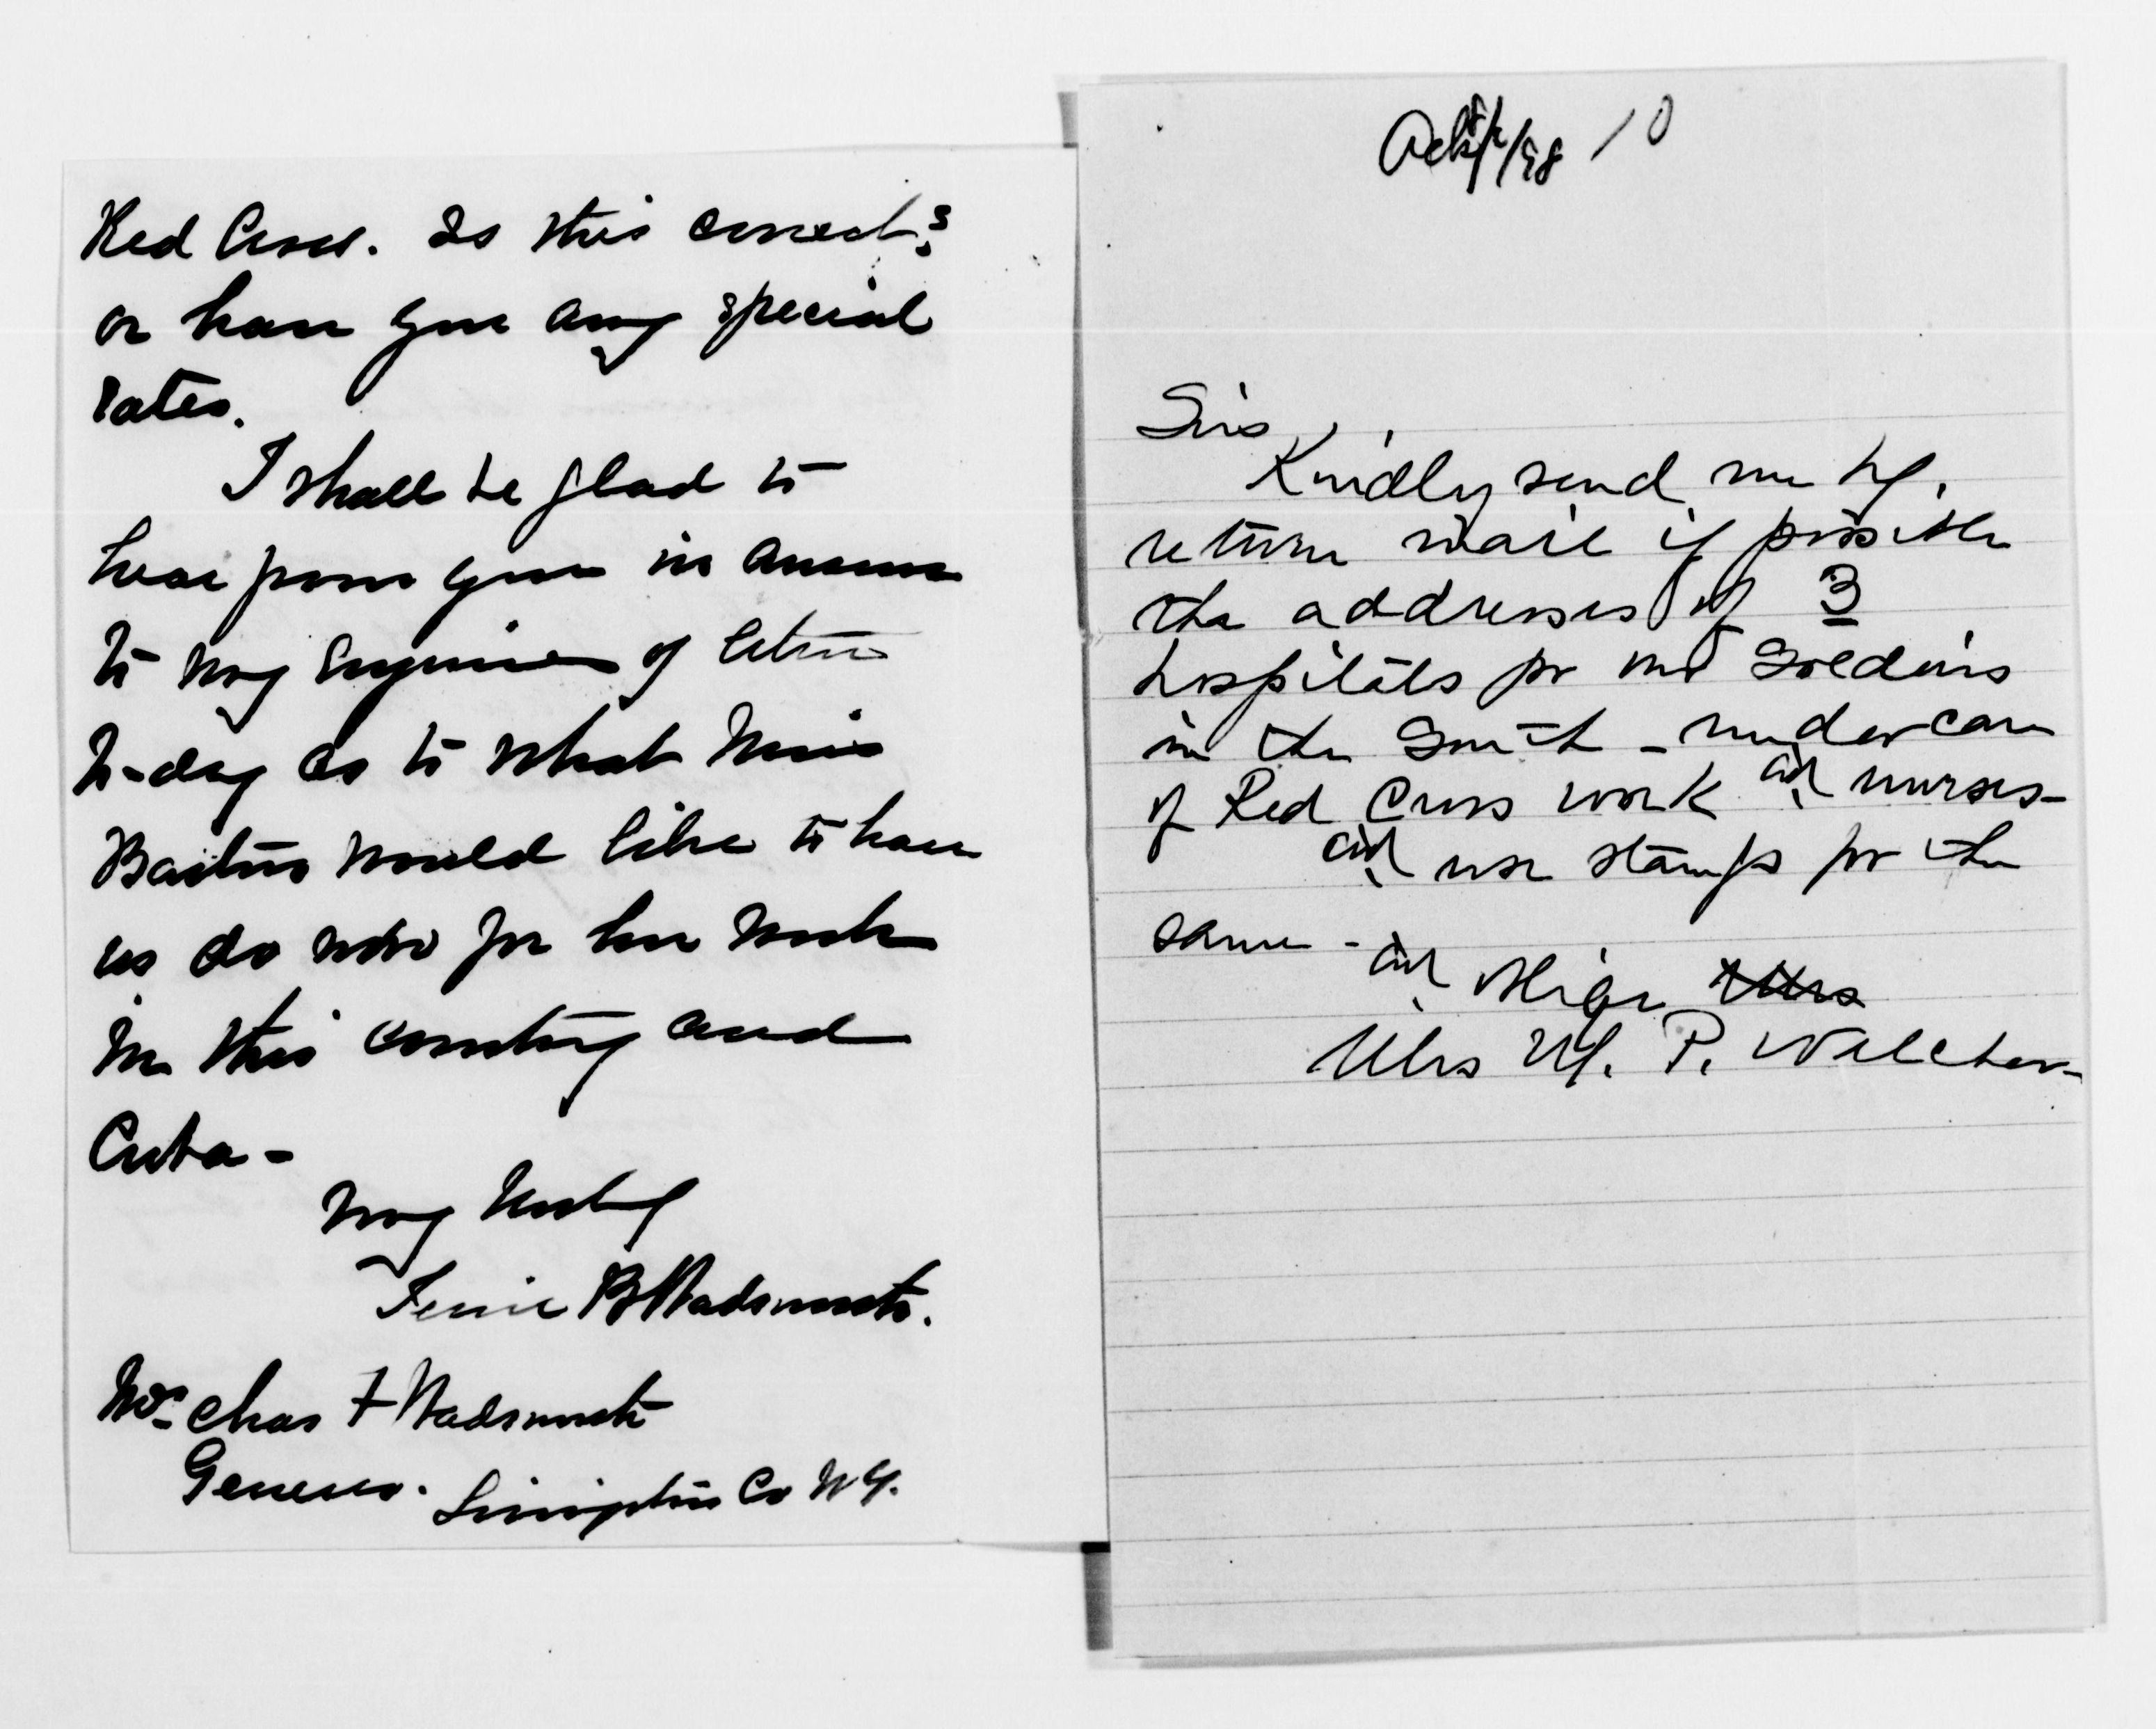 Red Cross. Is this correct?
or have you any special
rates.
I shall be glad to
hear from you in answer
to my enquiries of letter
to-day as to what Miss
Barton would like to have
us do now for her work
in this country and
Cuba -
Very truly
Jessie B Wadsworth.
Mrs Chas F Wadsworth
Geneseo. Livingston Co N Y.
Ack /98 10
Sirs
Kindly send me by
return mail if possible
the addresses of 3
hospitals for our soldiers
in the South - under care
of Red Cross work and nurses -
and use stamps for the
same - and oblige Mrs
Mrs M. P. Welcher -